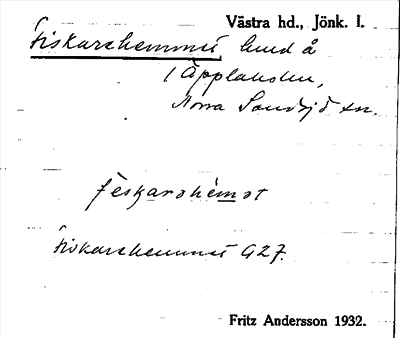 Västra hd., Jönk. l.
Fiskarehemmet lund å
Äpplaholm,
Norra Sandsjö sn.
feskarahemat
Fiskarehemmet G27.
Fritz Andersson 1932.